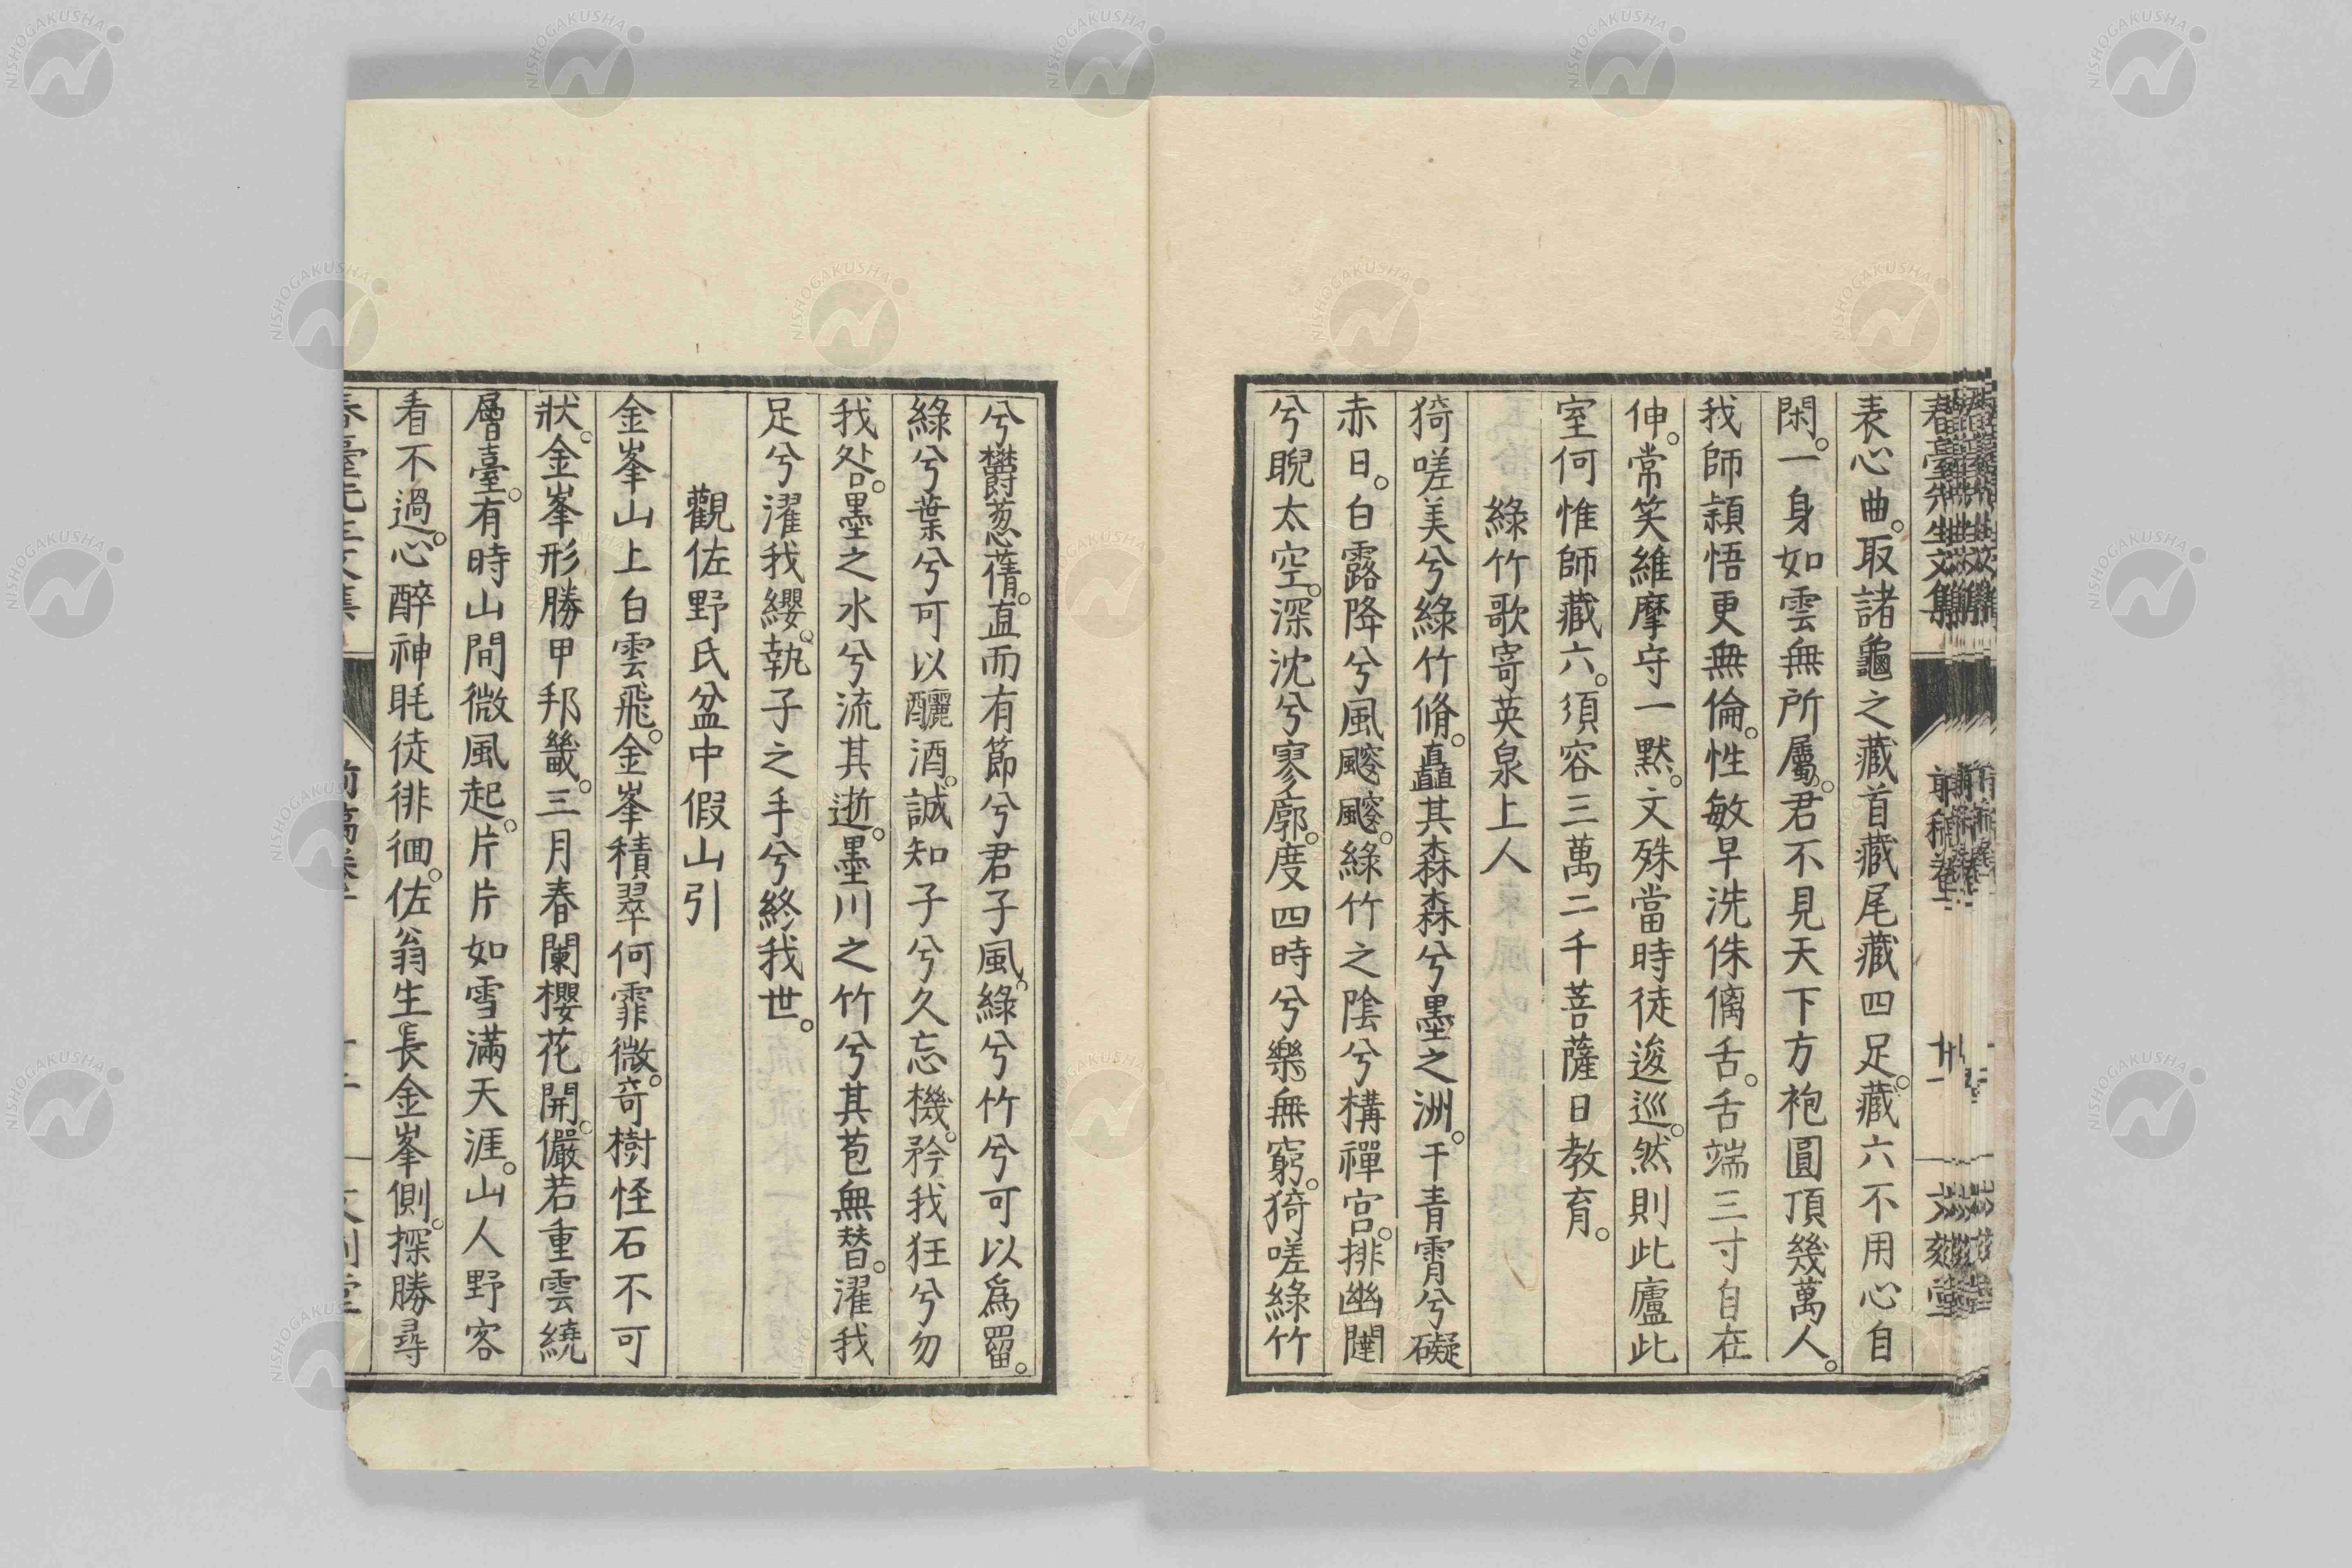 表心曲。取諸龜之藏首藏尾藏四足。藏六不用心自
閑。一身如雲無所屬。君不見天下方袍圓頂幾萬人。
我師穎悟更無倫。性敏早洗侏㒧舌。舌端三寸自在
伸。常笑維摩守一默。文殊當時徒逡巡。然則此廬此
室何惟師藏六。須容三萬二千菩薩日教育。
綠竹歌寄英泉上人
猗嗟美兮綠竹脩。矗其森森兮墨之洲。干青霄兮礙
赤日。白露降兮風飂飂。綠竹之陰兮構禪宮。排幽闥
兮睨太空。深沈兮寥廓。度四時兮樂無窮。猗嗟綠竹
兮欝葱蒨。直而有節兮君子風。綠兮竹兮可以爲罶。
綠兮葉兮可以釃酒。誠知子兮久忘機。矜我狂兮勿
我咎。墨之水兮流其逝。墨川之竹兮其苞無替。濯我
足兮濯我纓。執子之手兮終我世。
觀佐野氏盆中假山引
金峯山上白雲飛。金峯積翠何霏微。奇樹怪石不可
狀。金峯形勝甲邦畿。三月春闌櫻花開。儼若重雲繞
層臺。有時山間微風起。片片如雪滿天涯。山人野客
看不過。心醉神眊徒徘徊。佐翁生長金峯側。探勝尋